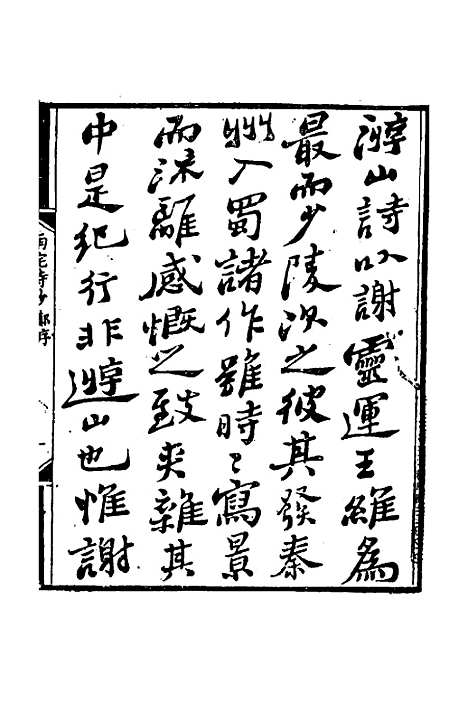 游山詩以謝靈運王維為
最而少陵次之彼其發秦
州入蜀諸作雖時〻寫景
而流離感慨之致夾雜其
中是紀行非遊山也惟謝